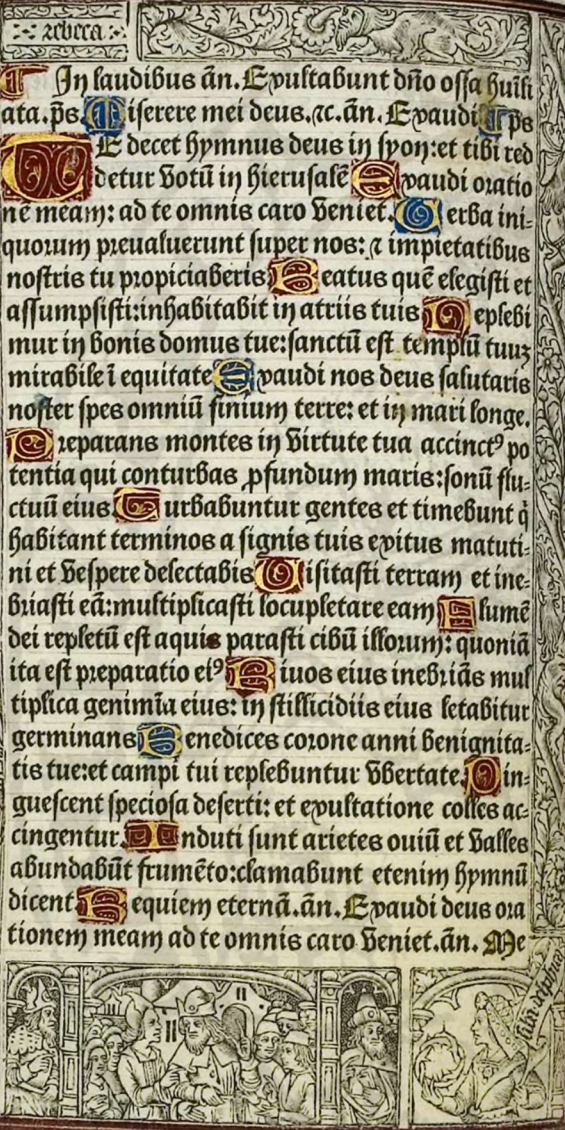 rebeca
In laudibus añ. Exultabunt dño ossa huili
ata. p̄s. Miserere mei deus. ⁊c. añ. Exaudi ps
TE decet hymnus deus in syon: et tibi red
detur votū in hierusalē Exaudi oratio
nē meam: ad te omnis caro veniet. Verba ini-
quorum preualuerunt super nos: ⁊ impietatibus
nostris tu propiciaberis Beatus quē elegisti et
assumpsisti: inhabitabit in atriis tuis Replebi
mur in bonis domus tue: sanctū est templū tuuz
mirabile ī equitate Exaudi nos deus salutaris
noster spes omniū finium terre: et in mari longe.
Preparans montes in virtute tua accinctꝰ po
tentia qui conturbas ꝓfundum maris: sonū flu-
ctuū eius Turbabuntur gentes et timebunt q̇
habitant terminos a signis tuis exitus matuti-
ni et vespere delectabis Uisitasti terram et ine-
briasti eā: multiplicasti locupletare eam Flumē
dei repletū est aquis parasti cibū illorum: quoniā
ita est preparatio eiꝰ Riuos eius inebriās mul
tiplica genimīa eius: in stillicidiis eius letabitur
germinans Benedices corone anni benignita-
tis tue: et campi tui replebuntur vbertate. Pin-
guescent speciosa deserti: et exultatione colles ac-
cingentur. Induti sunt arietes ouiū et valles
abundabūt frumēto: clamabunt etenim hymnū
dicent Requiem eternā. añ. Exaudi deus ora
tionem meam ad te omnis caro veniet. añ. Me